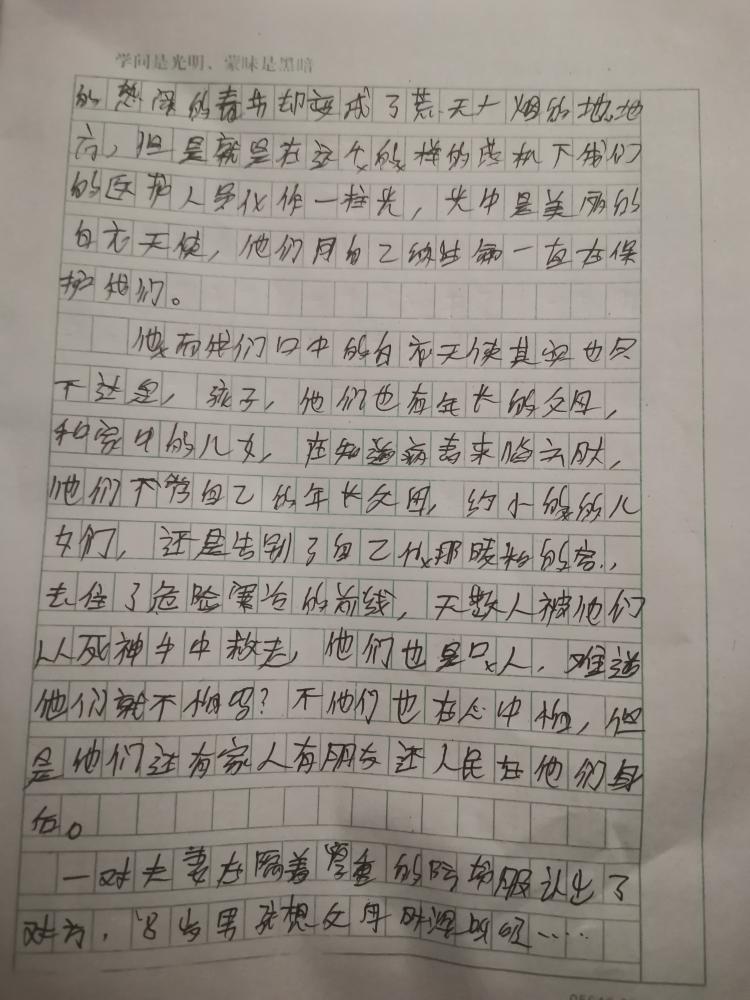 学问是光明、蒙味是黑暗
的悠闲的春节却变成了荒无人烟的地地
方，但是就是在这个的样的危机下我们
的医护人员化作一柱光，光中是美丽的
白衣天使，他们用自己的生命一直在保
护我们。
他而我们口中的白衣天使其实也只
不过是，孩子，他们也有年长的父母，
和家中的儿女，在知道病毒来临之时，
他们不管自己的年长父母，幼小的的儿
女们，还是告别了自己那的
去往了危险寒冷的前线，无数人被他们
从死神手中救走，他们也是只人，难道
他们就不怕吗？不他们也在心中怕，但
是他们还有家人有朋友还人民在他们身
后。
一对夫妻在隔着厚重的防护服认出了
对方，8岁男孩想父母